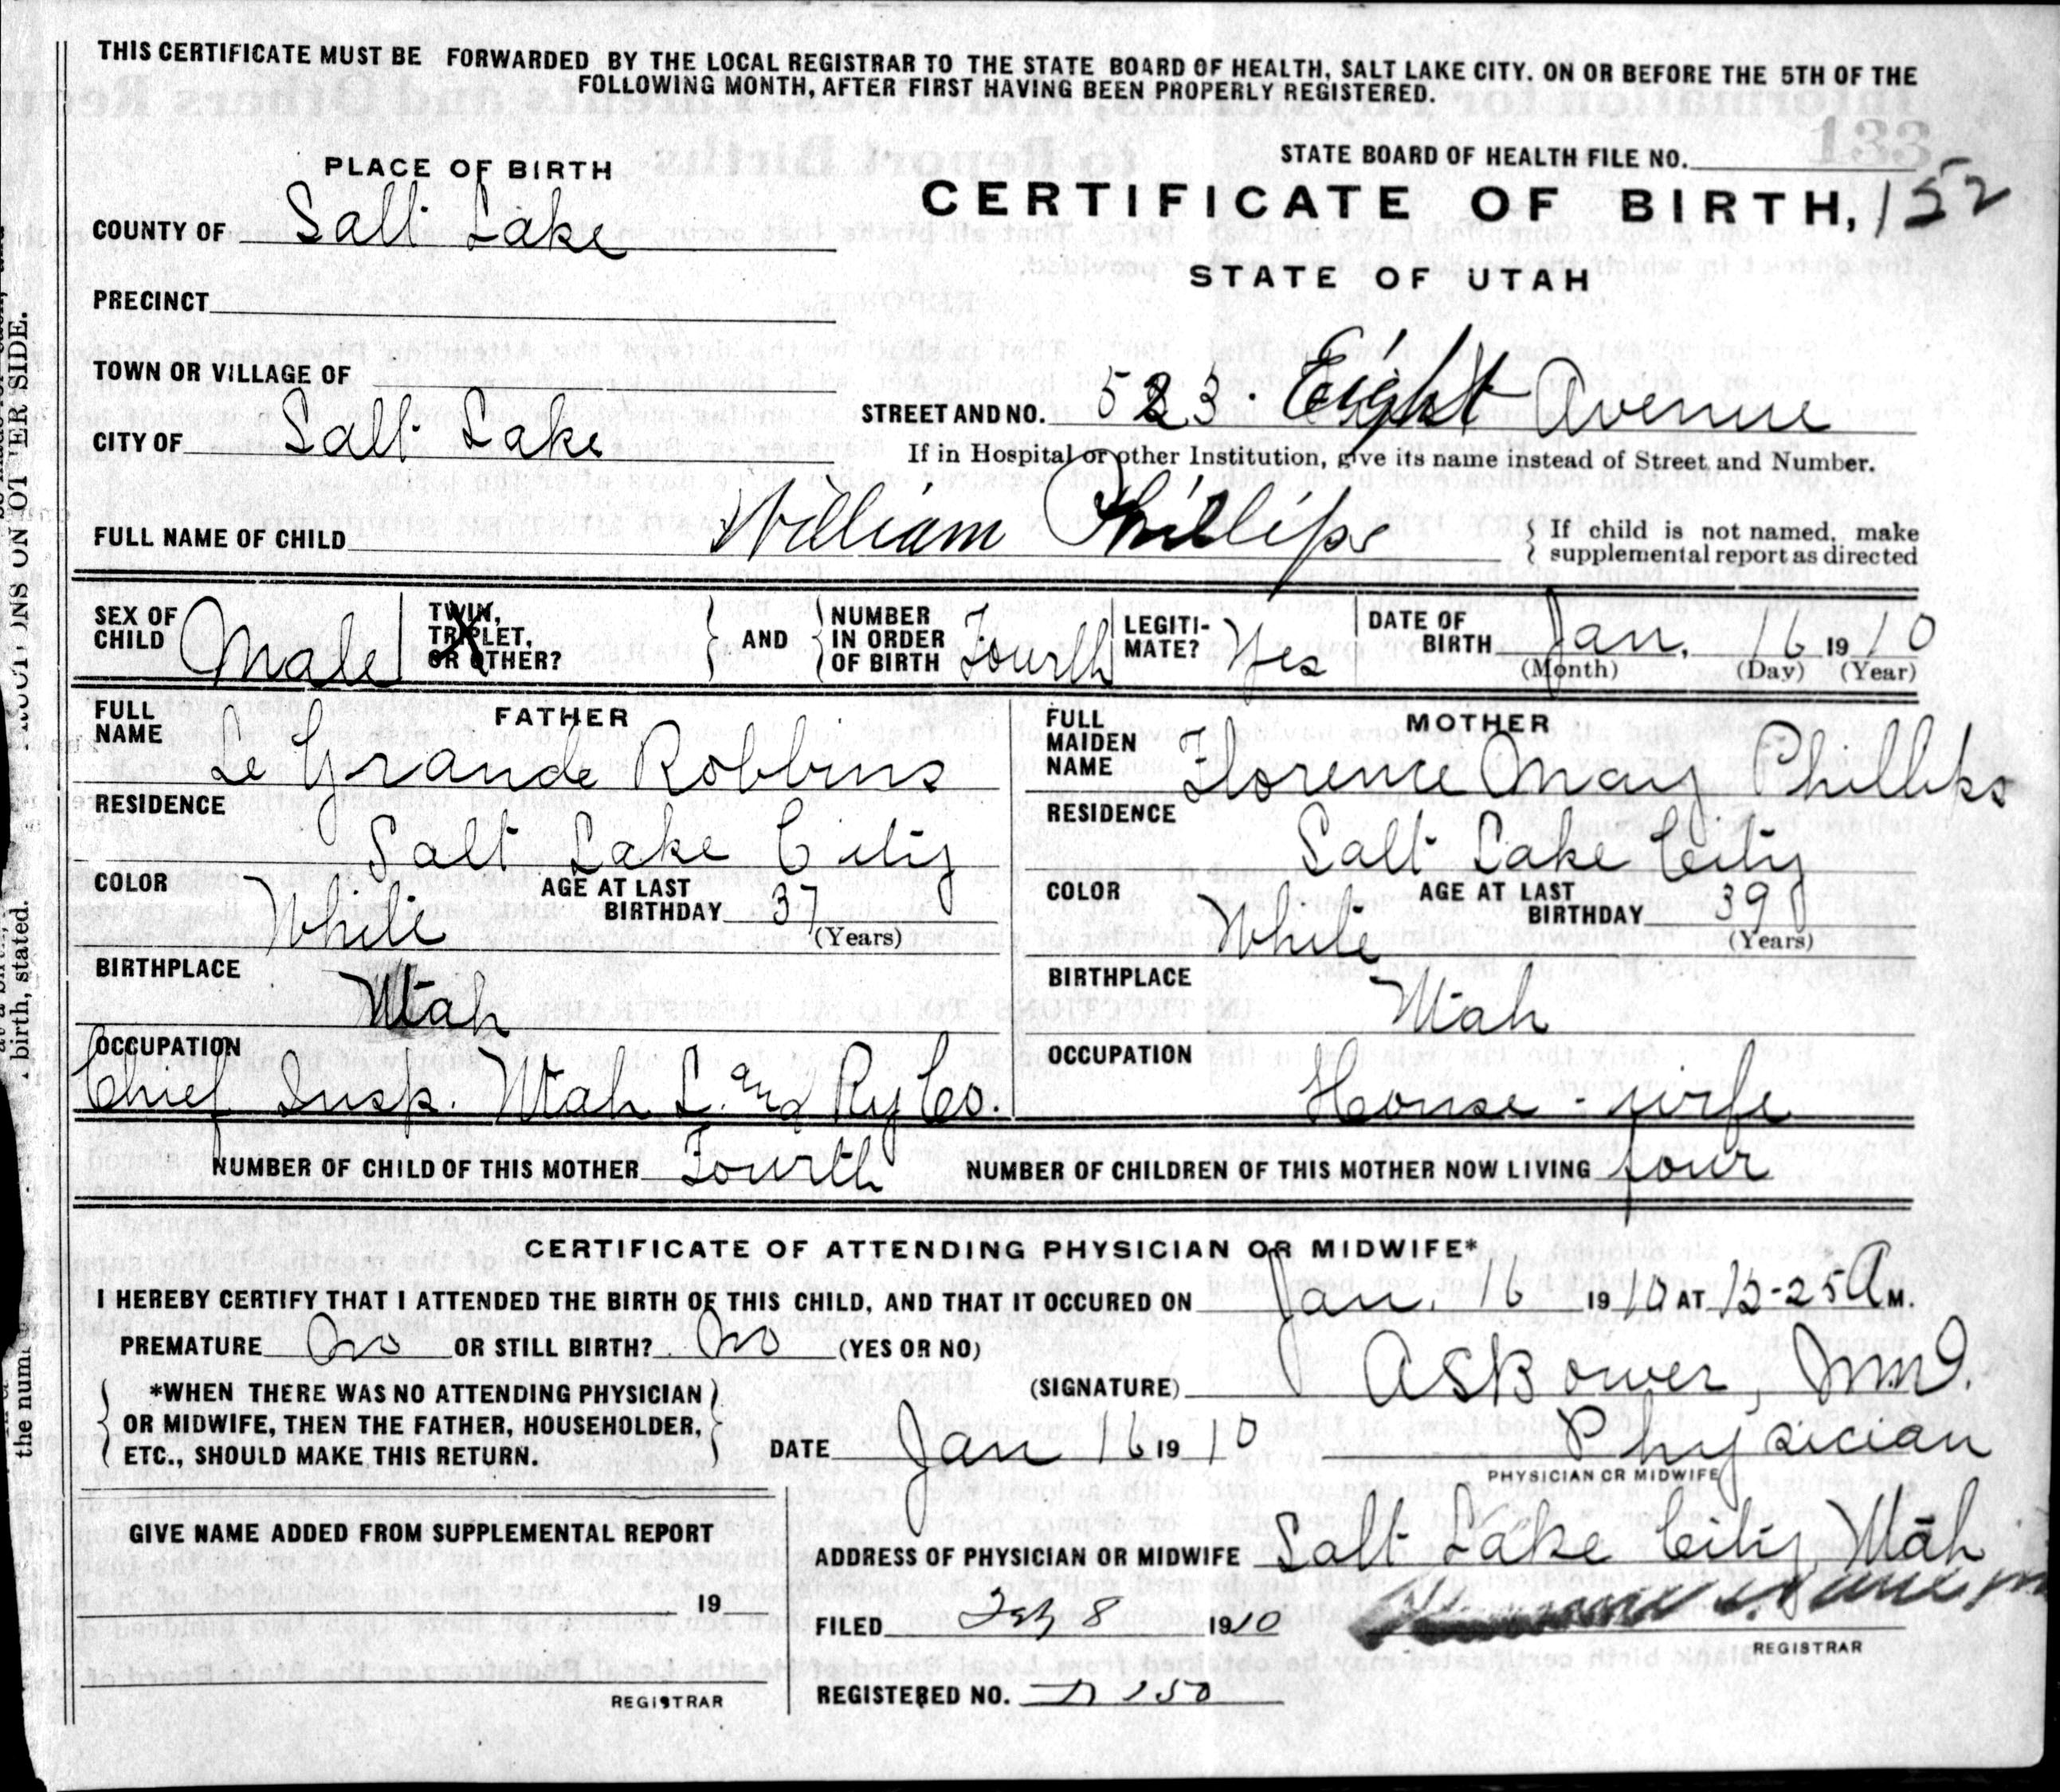 THIS CERTIFICATE MUST BE FORWARDED BY THE LOCAL REGISTRAR TO THE STATE BOARD OF HEALTH, SALT LAKE CITY. ON OR BEFORE THE 5TH OF THE
FOLLOWING MONTH, AFTER FIRST HAVING BEEN PROPERLY REGISTERED.
PLACE OF BIRTH
STATE BOARD OF HEALTH FILE NO. 133
CERTIFICATE OF BIRTH, 152
COUNTY OF Salt Lake
STATE OF UTAH
PRECINCT
TOWN OR VILLAGE OF
STREET AND NO. 523. Eight Avenue
CITY OF Salt Lake
If in Hospital or other Institution, give its name instead of Street and Number.
FULL NAME OF CHILD William Phillips
{ If child is not named, make
supplemental report as directed
SEX OF CHILD Male
TWIN, TRIPLET, OR OTHER? X } AND { NUMBER IN ORDER OF BIRTH Fourth
LEGITIMATE? Yes
DATE OF BIRTH Jan. 16 1910
(Month) (Day) (Year)
FATHER
FULL NAME Le Grande Robbins
MOTHER
FULL MAIDEN NAME Florence May Phillips
RESIDENCE Salt Lake City
RESIDENCE Salt Lake City
COLOR White AGE AT LAST BIRTHDAY 37 (Years)
COLOR White AGE AT LAST BIRTHDAY 39 (Years)
BIRTHPLACE Utah
BIRTHPLACE Utah
OCCUPATION Chief Insp. Utah L. and Ry Co.
OCCUPATION House-wife
NUMBER OF CHILD OF THIS MOTHER Fourth NUMBER OF CHILDREN OF THIS MOTHER NOW LIVING four
CERTIFICATE OF ATTENDING PHYSICIAN OR MIDWIFE*
I HEREBY CERTIFY THAT I ATTENDED THE BIRTH OF THIS CHILD, AND THAT IT OCCURED ON Jan. 16 1910 AT 12-25 A M.
PREMATURE No OR STILL BIRTH? No (YES OR NO)
(SIGNATURE) A S Bower, M.D.
{ *WHEN THERE WAS NO ATTENDING PHYSICIAN
OR MIDWIFE, THEN THE FATHER, HOUSEHOLDER,
ETC., SHOULD MAKE THIS RETURN. }
DATE Jan 16 1910 Physician
PHYSICIAN OR MIDWIFE
GIVE NAME ADDED FROM SUPPLEMENTAL REPORT
19
REGISTRAR
ADDRESS OF PHYSICIAN OR MIDWIFE Salt Lake City, Utah
FILED Feb 8 1910
REGISTRAR
REGISTERED NO. 150
birth, stated.
the num